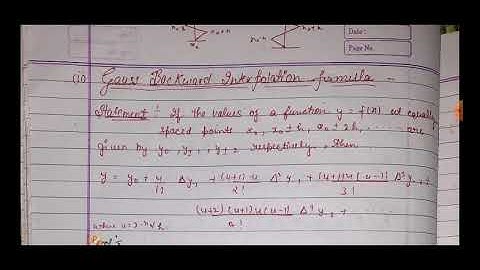 x₀+h
x₀-h
Date :
Page No.
(10) Gauss Backward Interpolation formula -
Statement : If the values of a function y = f(x) at equally
spaced points x₀, x₀ ± h, x₀ ± 2h, ...... are
given by y₀, y±₁, y±₂ respectively, then
y = y₀ + u/1! Δy₋₁ + (u+1)u/2! Δ²y₋₁ + (u+1)u(u-1)/3! Δ³y₋₂ +
(u+2)(u+1)u(u-1)/4! Δ⁴y₋₂ +
where u =
Proof :